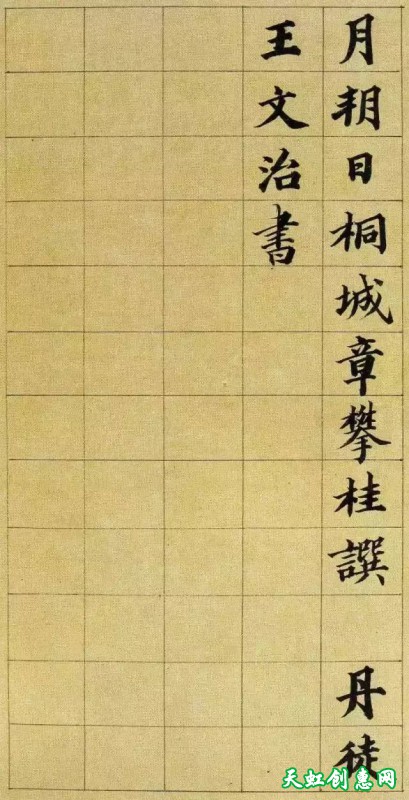 月朔日桐城章攀桂譔 丹徒
王文治書
天虹创惠网